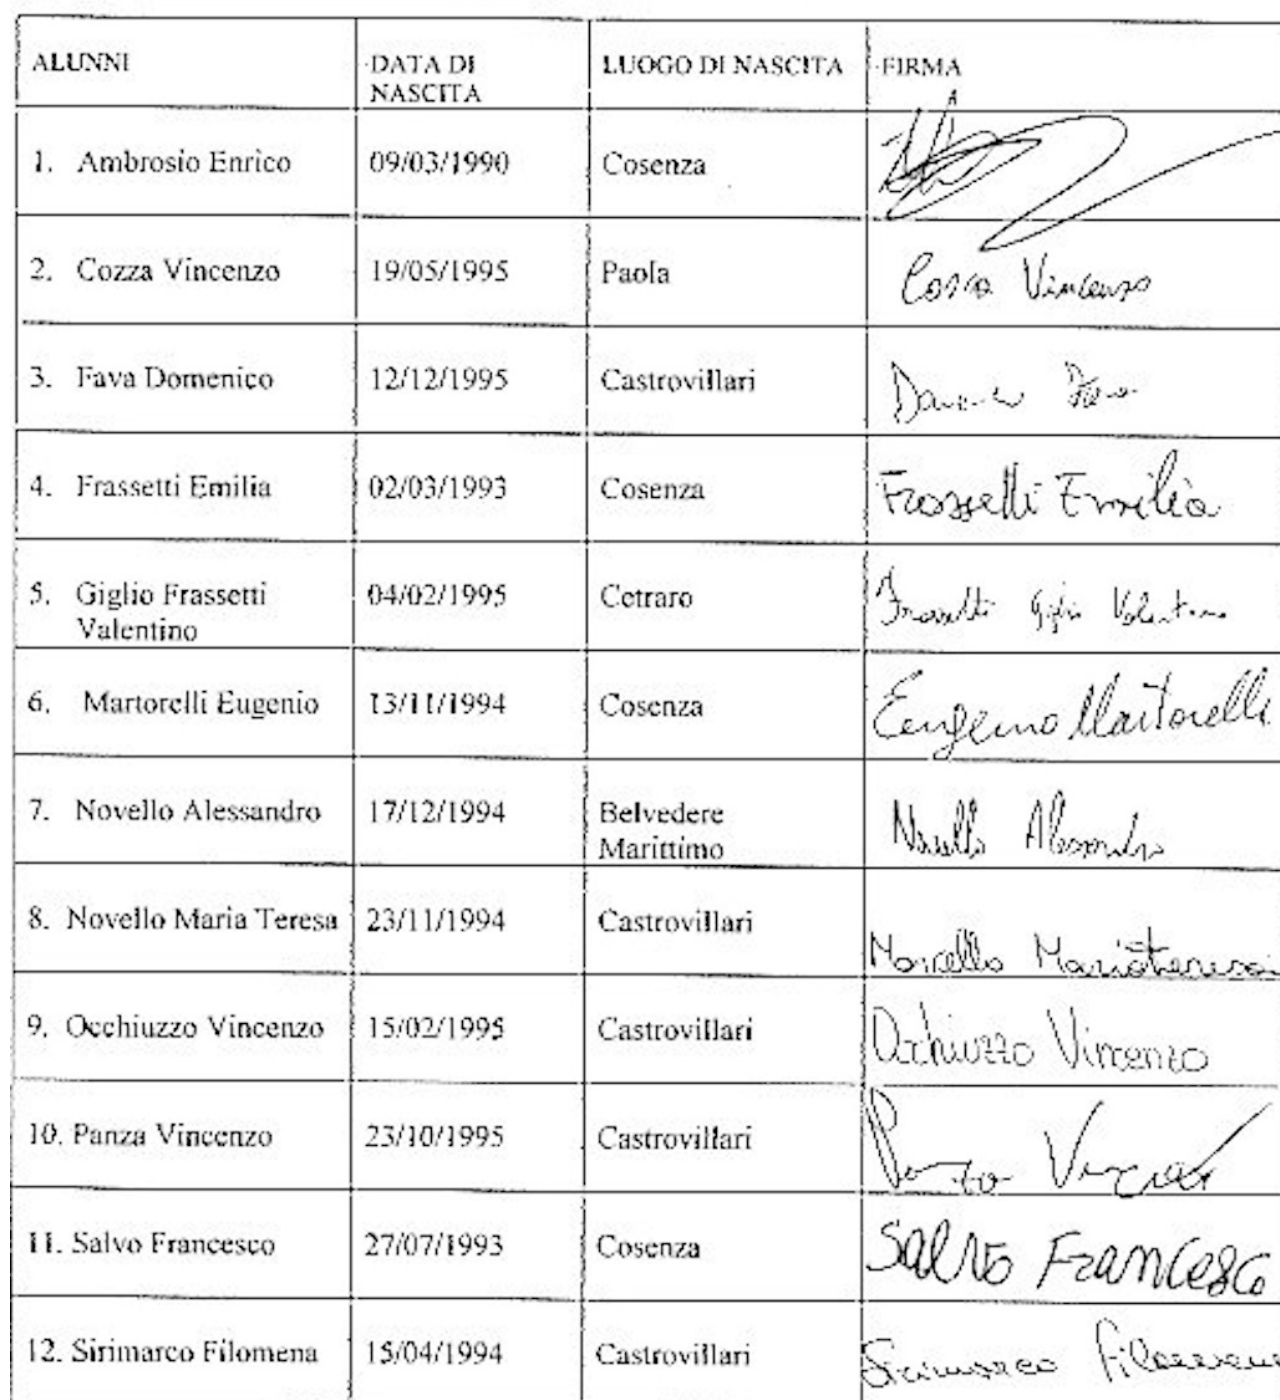 ALUNNI DATA DI NASCITA LUOGO DI NASCITA FIRMA
1. Ambrosio Enrico 09/03/1990 Cosenza
2. Cozza Vincenzo 19/05/1995 Paola Cozza Vincenzo
3. Fava Domenico 12/12/1995 Castrovillari
4. Frassetti Emilia 02/03/1993 Cosenza Frassetti Emilia
5. Giglio Frassetti Valentino 04/02/1995 Cetraro Frassetti Giglio Valentino
6. Martorelli Eugenio 13/11/1994 Cosenza Eugenio Martorelli
7. Novello Alessandro 17/12/1994 Belvedere Marittimo Novello Alessandro
8. Novello Maria Teresa 23/11/1994 Castrovillari Novello Mariateresa
9. Occhiuzzo Vincenzo 15/02/1995 Castrovillari Occhiuzzo Vincenzo
10. Panza Vincenzo 23/10/1995 Castrovillari
11. Salvo Francesco 27/07/1993 Cosenza Salvo Francesco
12. Sirimarco Filomena 15/04/1994 Castrovillari Sirimarco Filomena